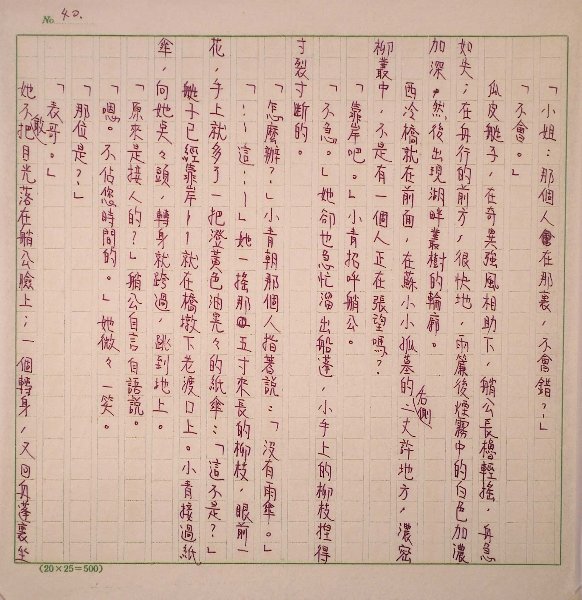 No. 40.
「小姐：那個人會在那裏，不會錯？」
「不會。」
瓜皮艇子，在奇異強風相助下，艄公長櫓輕搖，舟急
如失；在舟行的前方，很快地，雨簾後煙霧中的白色加濃
加深，然後出現湖畔叢樹的輪廓。
西泠橋就在前面，在蘇小小孤墓的右側二丈許地方，濃密
柳叢中，不是有一個人正在張望嗎？
「靠岸吧。」小青招呼艄公。
「不急。」她卻也急忙溜出船蓬，小手上的柳枝捏得
寸裂寸斷的。
「怎麼辦？」小青朝那個人指著說：「沒有雨傘。」
「……這……」她一搖那四五寸來長的柳枝，眼前一
花，手上就多了一把澄黃色油亮々的紙傘：「這不是？」
艇子已經靠岸——就在橋墩下老渡口上。小青接過紙
傘，向她點々頭，轉身就跨過，跳到地上。
「原來是接人的？」艄公自言自語說。
「嗯。不佔您時間的。」她微々一笑。
「那位是？」
「表哥。」
她不敢把目光落在艄公臉上；一個轉身，又回舟蓬裏坐
(20×25=500)